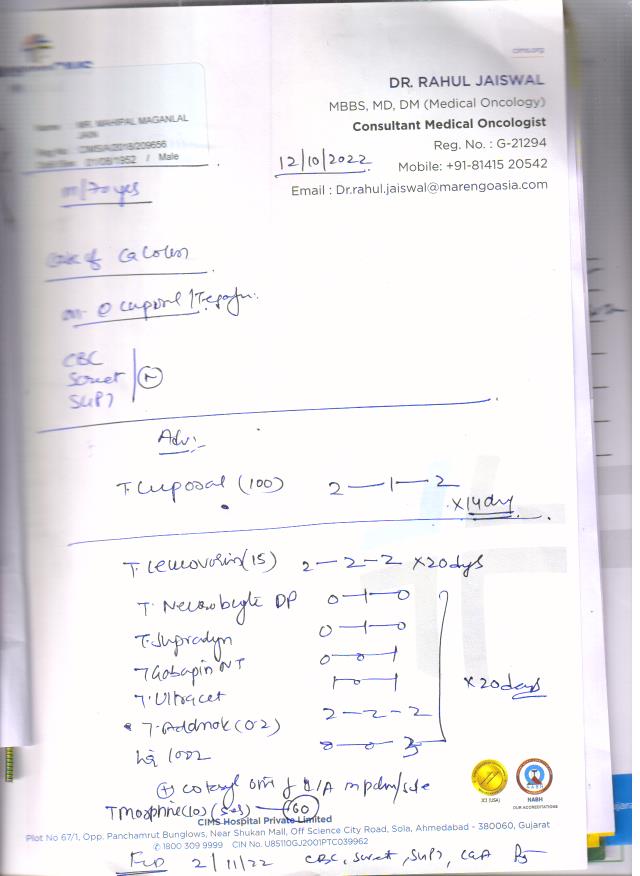 cims.org
DR. RAHUL JAISWAL
MBBS, MD, DM (Medical Oncology)
Consultant Medical Oncologist
Reg. No. : G-21294
Mobile: +91-81415 20542
Email : Dr.rahul.jaiswal@marengoasia.com
MR. MAHIPAL MAGANLAL
JAIN
CIMS/A/2018/209656
01/08/1952 / Male
12/10/2022
m/70 yes
Case of Ca Colon
CBC
Screat
SGPT
Adv:
T. Cuposal (100) 2—1—2
x 14 day
T. Leucovorin (15) 2—2—2 x 20 days
T. Neurobyte DP 0—1—0
T. Supradyn 0—1—0
T Gabapin NT 0—0—1
T. Ultracet 1—0—1
x 20 days
T. Addnok (0.2) 2—2—2
0—0—3
T Morphine (10) (SOS) — 60
JCI (USA)
NABH
OUR ACCREDITATIONS
CIMS Hospital Private Limited
Plot No 67/1, Opp. Panchamrut Bunglows, Near Shukan Mall, Off Science City Road, Sola, Ahmedabad - 380060, Gujarat
1800 309 9999 CIN No. U85110GJ2001PTC039962
2/11/22 CBC, Screat, SGPT, CEA